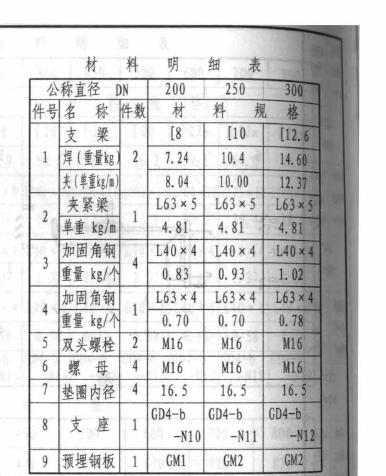 材 料 明 细 表
公称直径 DN 200 250 300
件号 名 称 件数 材 料 规 格
支 梁 [8 [10 [12.6
1 焊(重量kg) 2 7.24 10.4 14.60
夹(单重kg/m) 8.04 10.00 12.37
2 夹紧梁 1 L63×5 L63×5 L63×5
单重 kg/m 4.81 4.81 4.81
3 加固角钢 4 L40×4 L40×4 L40×4
重量 kg/个 0.83 0.93 1.02
4 加固角钢 1 L63×4 L63×4 L63×4
重量 kg/个 0.70 0.70 0.78
5 双头螺栓 2 M16 M16 M16
6 螺 母 4 M16 M16 M16
7 垫圈内径 4 16.5 16.5 16.5
8 支 座 1 GD4-b GD4-b GD4-b
-N10 -N11 -N12
9 预埋钢板 1 GM1 GM2 GM2